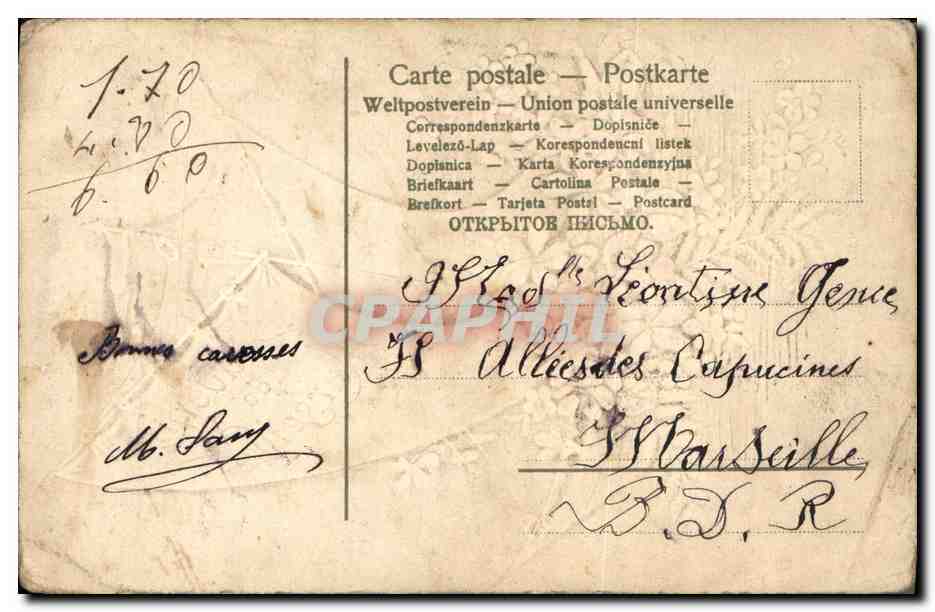 1.70
4.80
6.60
Bonnes caresses
M.
Carte postale — Postkarte
Weltpostverein — Union postale universelle
Correspondenzkarte — Dopisniče —
Levelező-Lap — Korespondencni listek
Dopisnica — Karta Korespondenzyjna
Briefkaart — Cartolina Postale —
Brefkort — Tarjeta Postal — Postcard
ОТКРЫТОЕ ПИСЬМО.
Madelle Léontine Gence
Allées des Capucines
Marseille
B.D.R
CPAPHIL